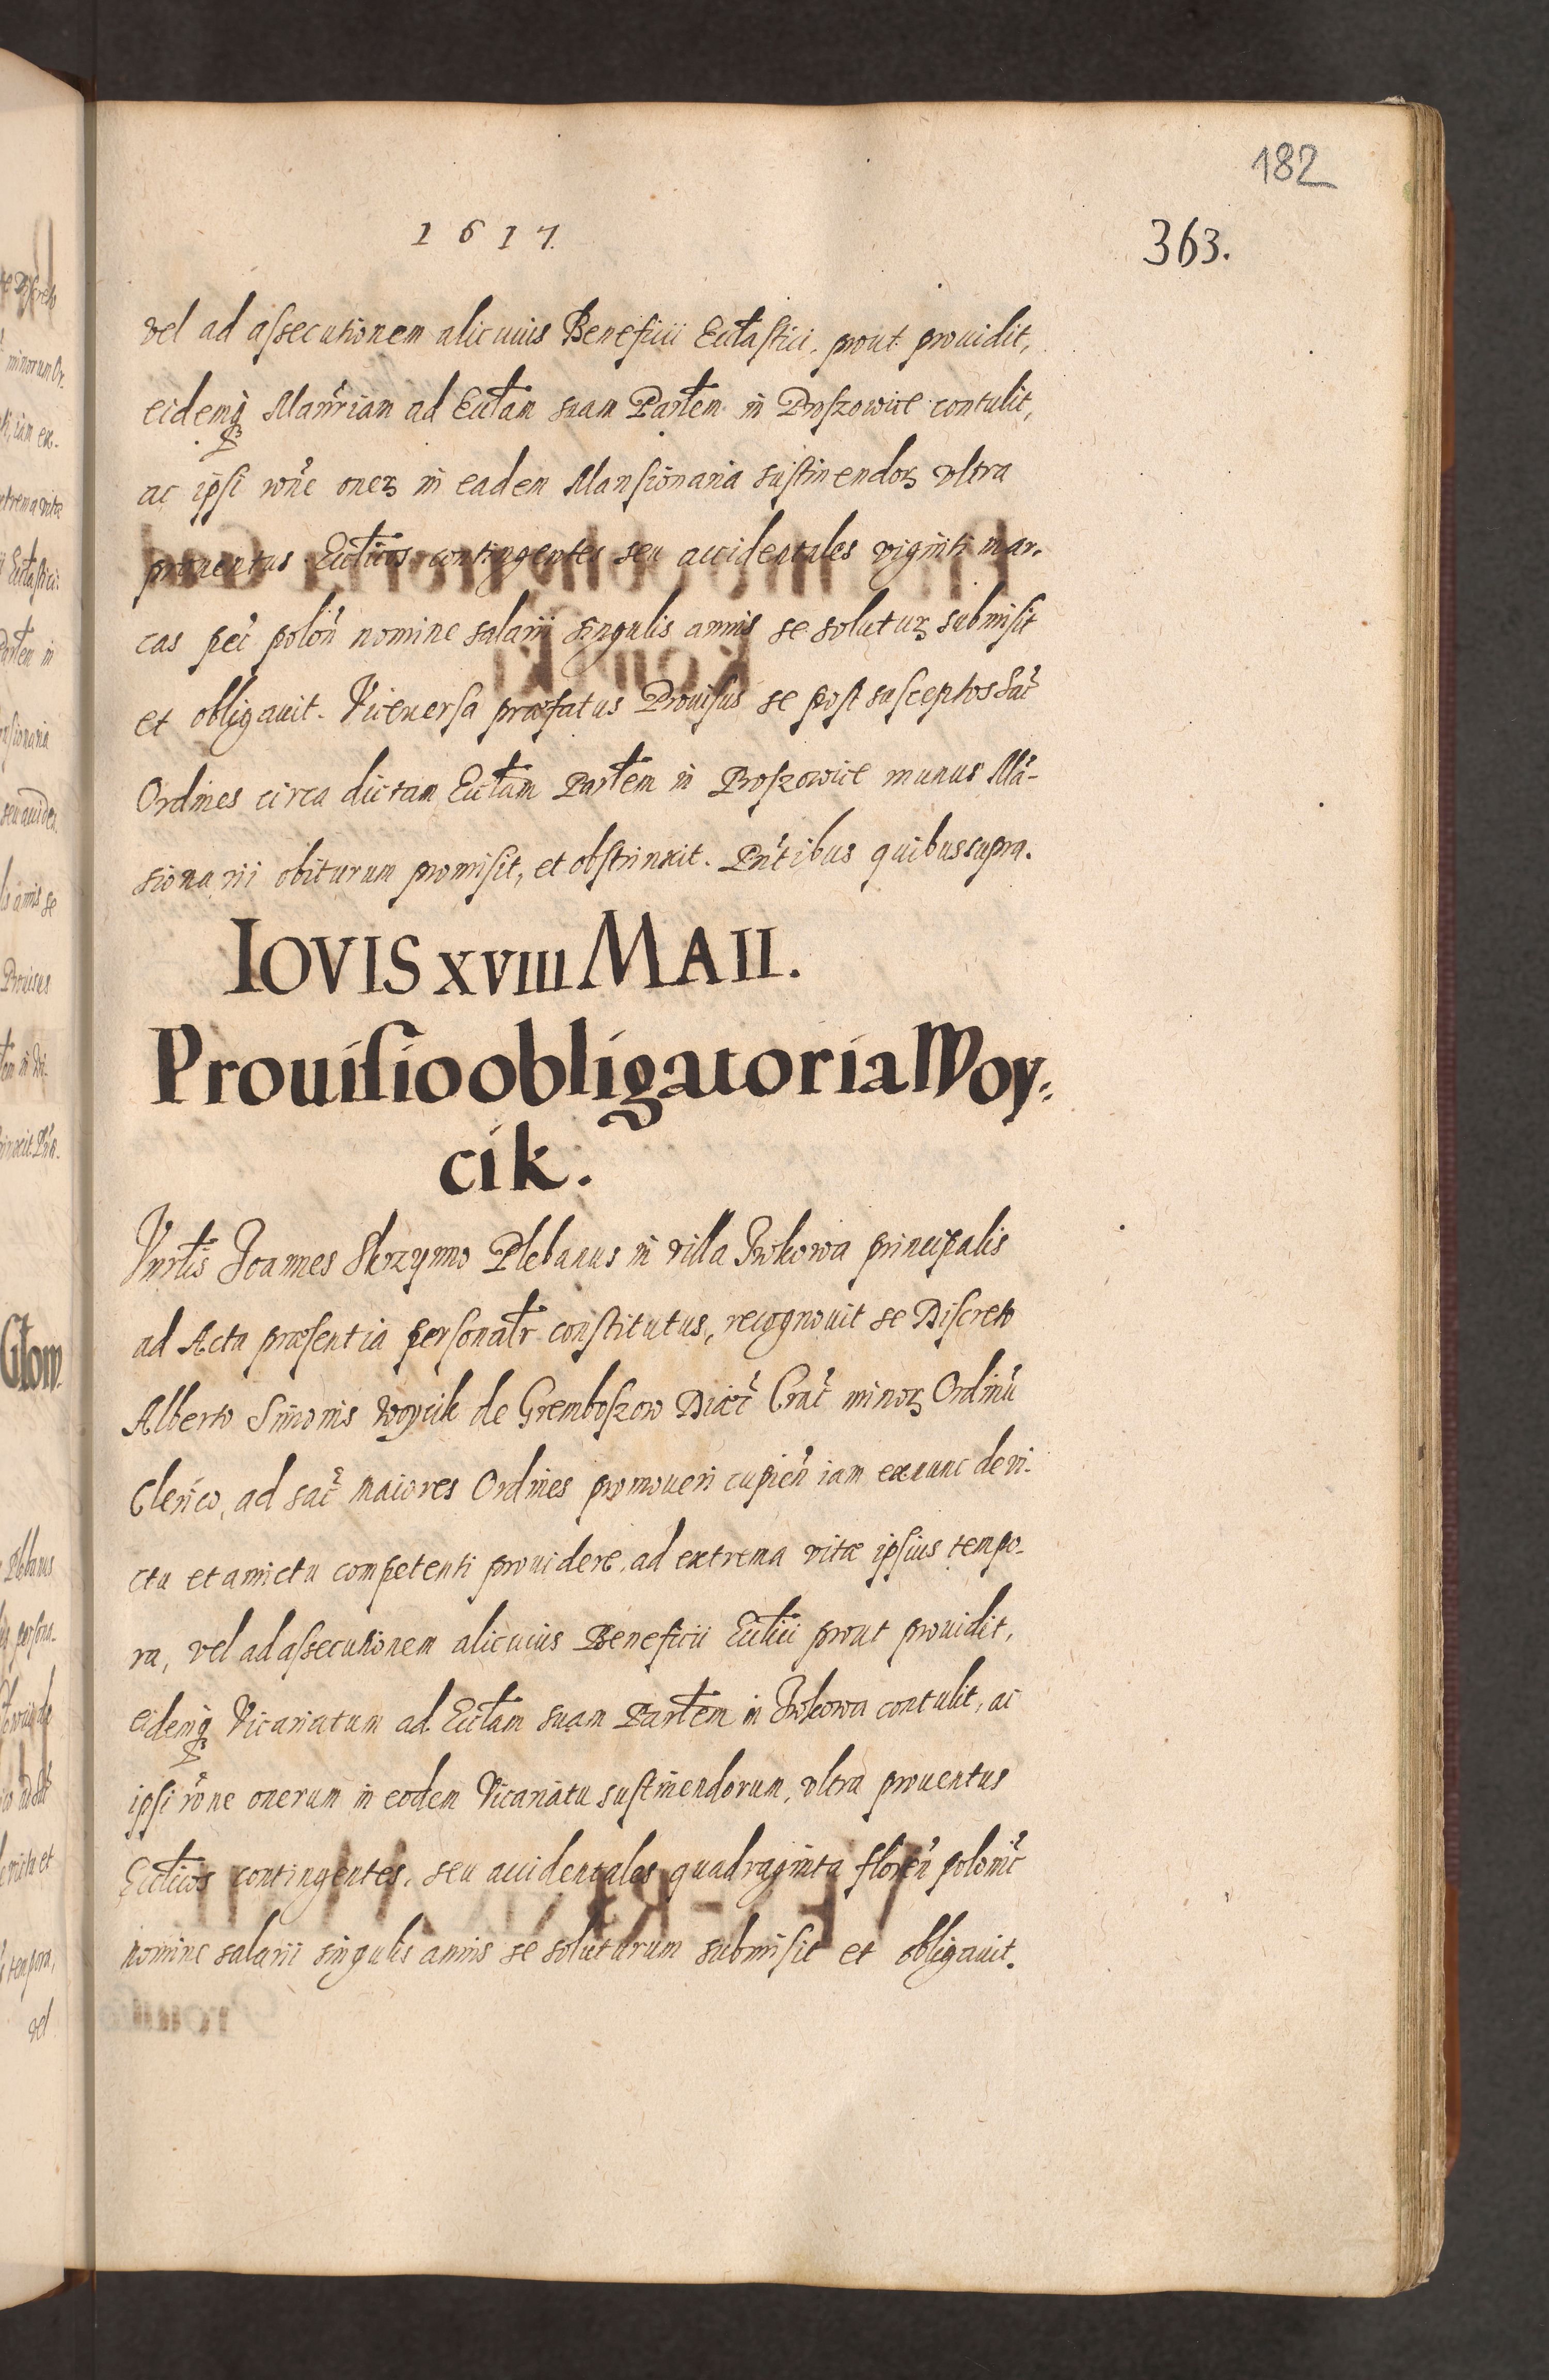 182
1617.
363.
vel ad assecutionem alicuius Beneficii Eccłastici, prout prouidit,
eidemq̃ Mansr̃iam ad Eccłam suam Parłem in Proszowice contulit,
ac ipsi rõne onerꝝ in eadem Mansionaria sustinendorꝝ vltra
prouentus Eccłicos contingentes seu accidentales viginti mar-
cas pec̃ polon̄ nomine salarii singulis annis se soluturꝝ submisit
et obligauit. Viceuersa præfatus Prouisus se post susceptos sac̃
Ordines circa dictam Eccłam Parłem in Proszowice munus Mã-
sionarii obiturum promisit, et obstrinxit. Pñtibus quibus supra.
IOVIS XVIII MAII.
Prouisio obligatoria Woy-
cik.
Vnrłis Joannes Skrzynno Plebanus in villa Iwkowa principalis
ad Acta præsentia personałr constitutus, recognouit se Discreto
Alberto Simonis Woycik de Gremboszow Diæc̃ Crac̃ minorꝝ Ordinũ
Clerico, ad sac̃ maiores Ordines promoueri cupieñ iam exnunc de vi-
ctu et amictu competenti prouidere, ad extrema vitæ ipsius tempo-
ra, vel ad assecutionem alicuius Beneficii Eccłici prout prouidit,
eidemq̃ Vicariatum ad Eccłam suam Parłem in Iwkowa contulit, ac
ipsi rõne onerum in eodem Vicariatu sustinendorum, vltra prouentus
Eccłicos contingentes, seu accidentales quadraginta floreñ polonic̃
nomine salarii singulis annis se soluturum submisit et obligauit.